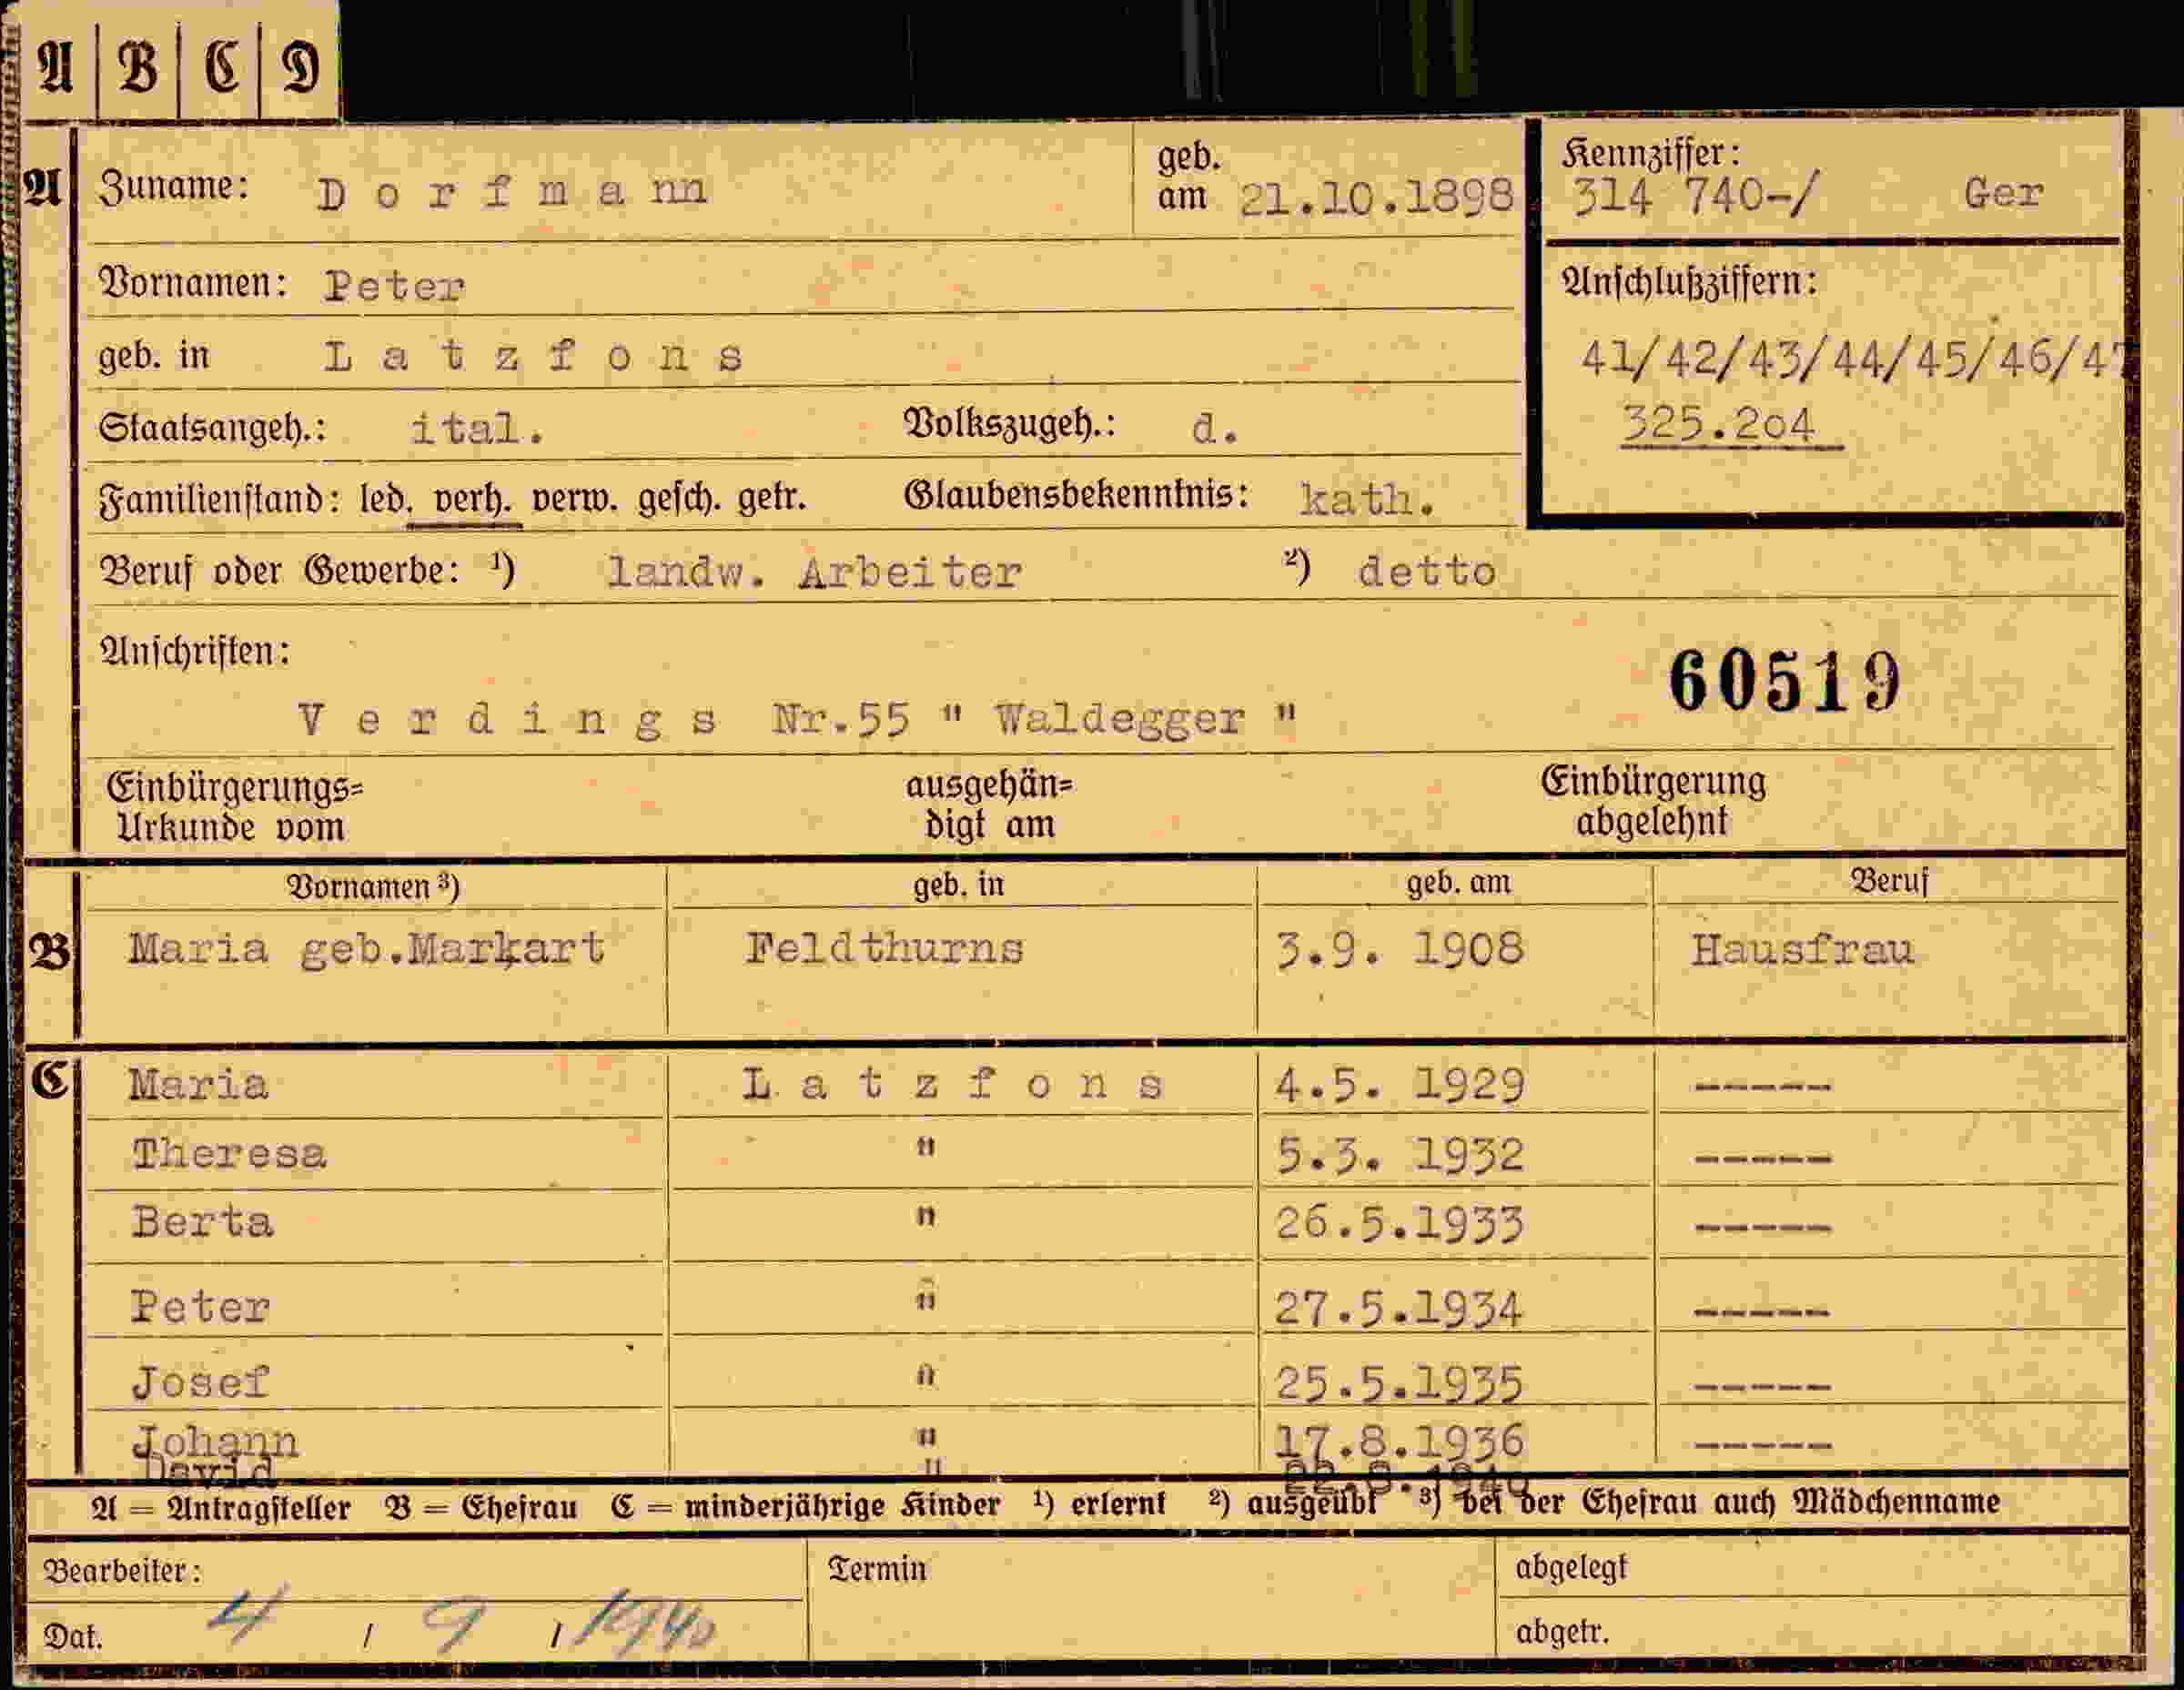 A | B | C | D
A Zuname: D o r f m a nn geb. am 21.10.1898
Kennziffer:
314 740-/ Ger
Vornamen: Peter
Anschlußziffern:
geb. in L a t z f o n s
41/42/43/44/45/46/47
Staatsangeh.: ital. Volkszugeh.: d.
325.2o4
Familienstand: led. verh. verw. gesch. getr. Glaubensbekenntnis: kath.
Beruf oder Gewerbe: ¹) landw. Arbeiter ²) detto
Anschriften:
60519
V e r d i n g s Nr.55 " Waldegger "
Einbürgerungs= ausgehän= Einbürgerung
Urkunde vom digt am abgelehnt
Vornamen ³) geb. in geb. am Beruf
B Maria geb.Markart Feldthurns 3.9. 1908 Hausfrau
C Maria L a t z f o n s 4.5. 1929 -----
Theresa " 5.3. 1932 -----
Berta " 26.5.1933 -----
Peter " 27.5.1934 -----
Josef " 25.5.1935 -----
Johann " 17.8.1936 -----
David "
A = Antragsteller B = Ehefrau C = minderjährige Kinder ¹) erlernt ²) ausgeübt ³) bei der Ehefrau auch Mädchenname
Bearbeiter: Termin abgelegt
Dat. 4 / 9 / 1940 abgetr.